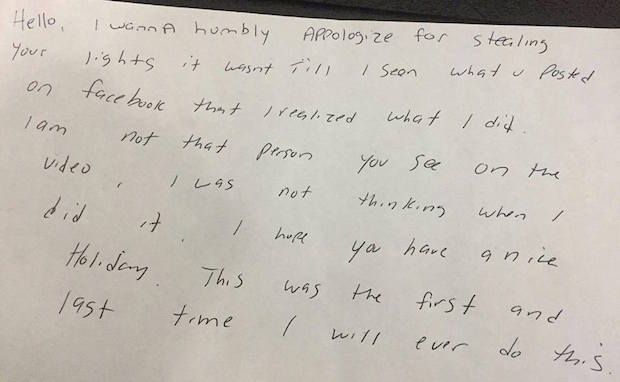 Hello, I wannA humbly Appologize for stealing
your lights it wasnt Till I Seen what u Posted
on facebook that I realized what I did.
I am not that person you see on the
video. I was not thinking when I
did it. I hope you have a nice
Holiday. This was the first and
last time I will ever do this.